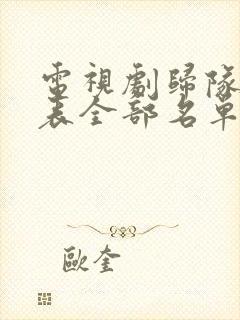 電視劇歸隊
表全部名單
歐奎